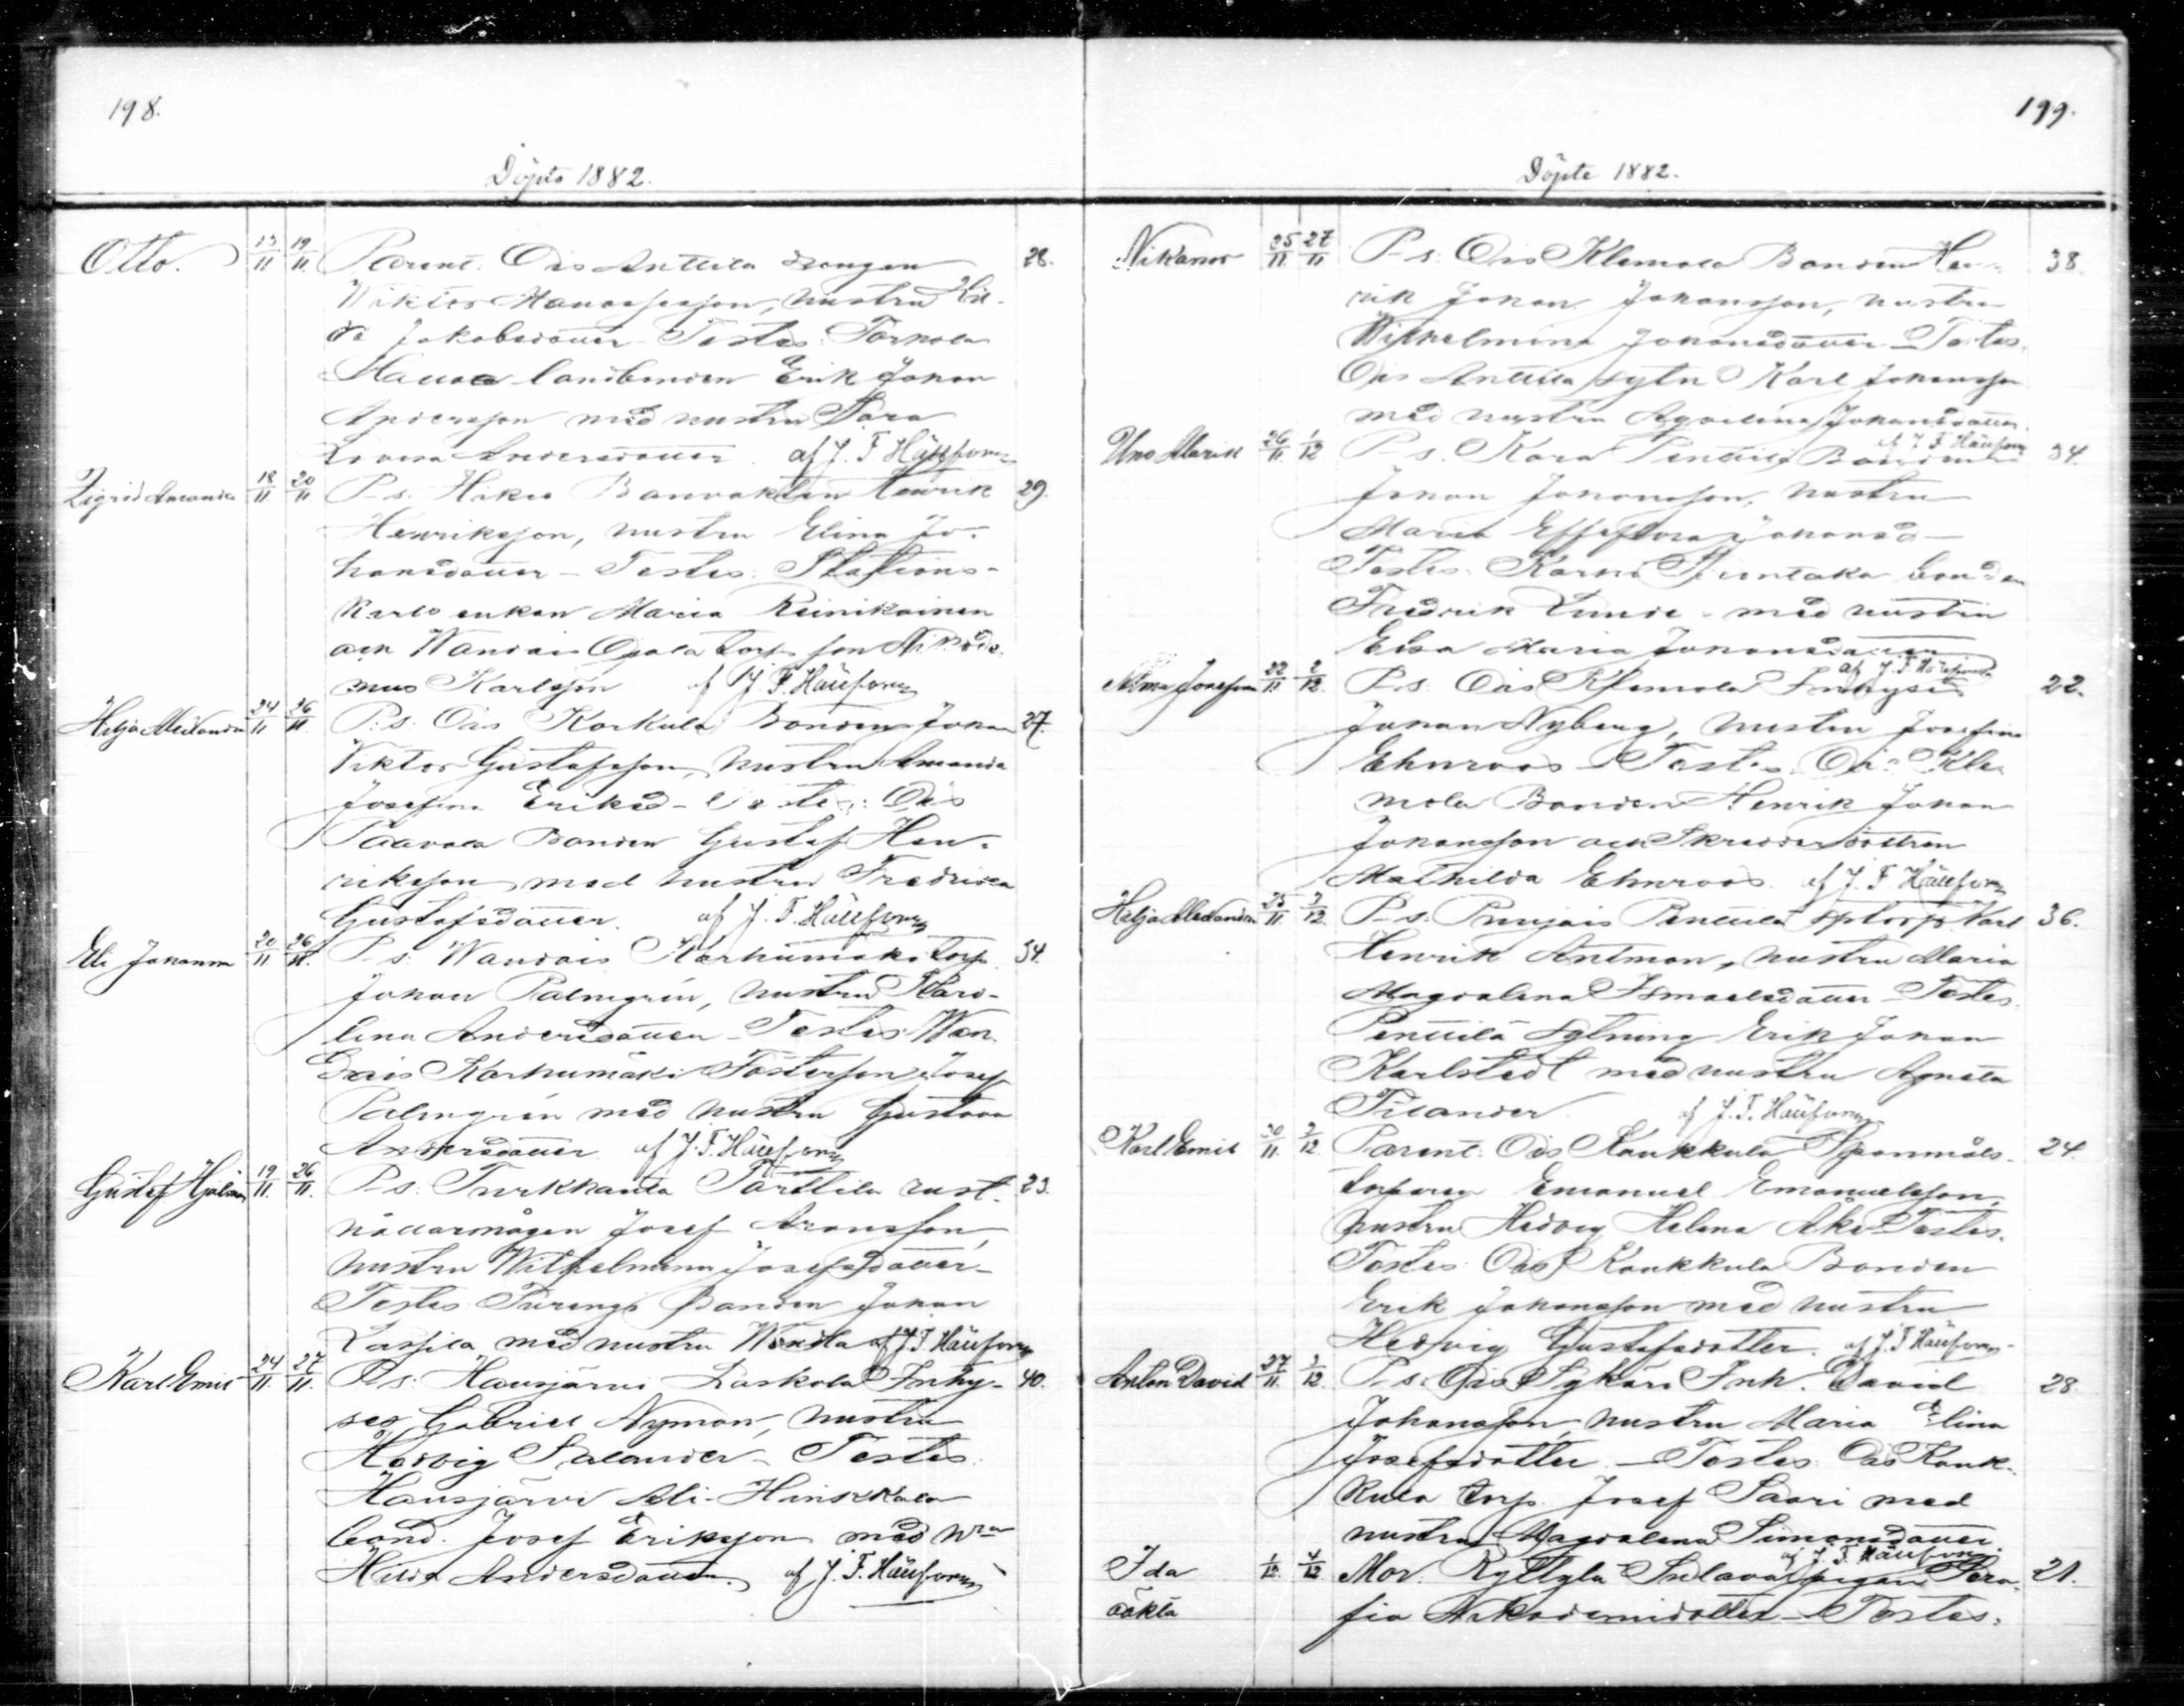 198.
Döpte 1882.
Otto. 13/11 19/11 Parent. Ois Anttila drengen 28.
Wiktor Manassesson, hustru
Jakobsdotter - Testes: Tornola
landbonden Erik Johan
Andersson med hustru Sara
Lovisa Andersdotter. af J. F. Hällfors
Zigrid Amanda 18/11 20/11 P-s. Hikiä Banvakten Henrik 29.
Henriksson, hustru Elina Jo-
hansdotter - Testes: Stations-
karls enkan Maria Reinikainen
och Wandais Ojala torp. son Nikode-
mus Karlsson af J. F. Hällfors
Hilja Alexandra 24/11 26/11 P. s. Ois Korkula Bonden Johan 27.
Viktor Gustafsson, hustru Amanda
Josefina Eriksd - Testes: Ois
Paavola Bonden Gustaf Hen-
riksson med hustru Fredrika
Gustafsdotter. af J. F. Hällfors
Johanna 20/11 26/11 P-s. Wandais Karhumäki torp. 34.
Johan Palmgrén, hustru Karo-
lina Andersdotter - Testes Wan-
dais Karhumäki Fosterson Josef
Palmgrén med hustru Gustava
Andersdotter af J. F. Hällfors
Gustaf Hjalmar 19/11 26/11 P-s. Turkhauta Torttila rust- 23.
hållarmågen Josef Aronsson,
hustru Wilhelmina Josefsdotter -
Testes Turengi Bonden Johan
Lassila med hustru Wendla af J. F. Hällfors
Karl Emil 24/11 27/11 P-s. Hausjärvi Laskola Inhy- 40.
ses Gabriel Nyman, hustru
Hedvig Salander - Testes
Hausjärvi Ali-Hinkkala
bond. Josef Eriksson med
Hilda Andersdotter. af J. F. Hällfors
199.
Döpte 1882.
Nikanor 25/11 27/11 P-s. Ois Klemola Bonden Hen- 38.
rik Johan Johansson, hustru
Wilhelmina Johansdotter - Testes.
Ois Anttila sytn. Karl Johansson
med hustru Agvelina Johansdotter.
af J. F. Hällfors
Uno Alarik 26/11 1/12 P-s. Kara Penttilä Bonden 34.
Johan Johansson, hustru
Maria Johansd -
Testes. Karhi bonden
Fredrik med hustru
Elsa Maria Johansdotter
af J. F. Hällfors
Alma Josefina 22/11 2/12 P-s. Ois Klemola Inhyses 22.
Johan Nyberg, hustru Josefina
Ehnroos - Testes Ois Kle-
mola Bonden Henrik Johan
Johansson och Skreddardottren
Mathilda Ehnroos. af J. F. Hällfors
Hilja Alexandra 25/11 3/12 P-s. Penttilä sptorp. Karl 36.
Henrik Antman, hustru Maria
Magdalena Ismaelsdotter - Testes.
Penttilä Sytning Erik Johan
Karlstedt med hustru Agneta
Silander. af J. F. Hällfors
Karl Emil 30/11 3/12 Parent: Ois Kaukkula Spanmåls- 24.
torparen Emanuel Emanuelsson,
hustru Hedvig Helena Ake - Testes.
Testes. Ois Kaukkula Bonden
Erik Johansson med hustru
Hedvig Gustafsdotter. af J. F. Hällfors
Anton David 27/11 3/12 P-s. Ois Sykäri Inh. David 28.
Johansson, hustru Maria Elina
Josefsdotter. - Testes. Ois Kauk-
kula torp. Josef Saari med
hustru Magdalena Simonsdotter.
af J. F. Hällfors
Ida 1/12 4/12 Mor. Ryttylä pigan Sera- 21.
oäkta fia Nikodemidotter - Testes.